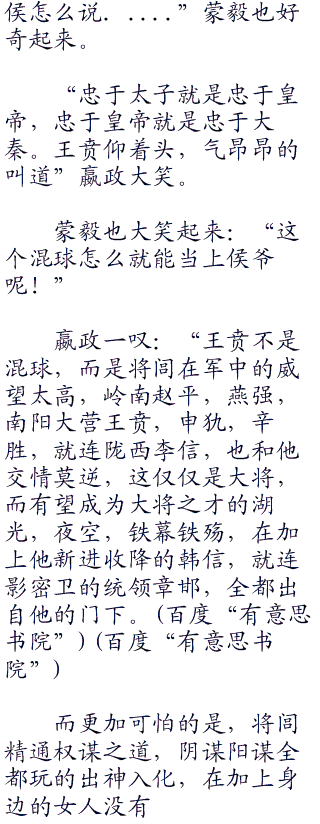 侯怎么说．....”蒙毅也好
奇起来。
“忠于太子就是忠于皇
帝，忠于皇帝就是忠于大
秦。王贲仰着头，气昂昂的
叫道”嬴政大笑。
蒙毅也大笑起来：“这
个混球怎么就能当上侯爷
呢！”
嬴政一叹：“王贲不是
混球，而是将闾在军中的威
望太高，岭南赵平，燕强，
南阳大营王贲，申犰，辛
胜，就连陇西李信，也和他
交情莫逆，这仅仅是大将，
而有望成为大将之才的湖
光，夜空，铁幕铁殇，在加
上他新进收降的韩信，就连
影密卫的统领章邯，全都出
自他的门下。(百度“有意思
书院”)(百度“有意思书
院”)
而更加可怕的是，将闾
精通权谋之道，阴谋阳谋全
都玩的出神入化，在加上身
边的女人没有